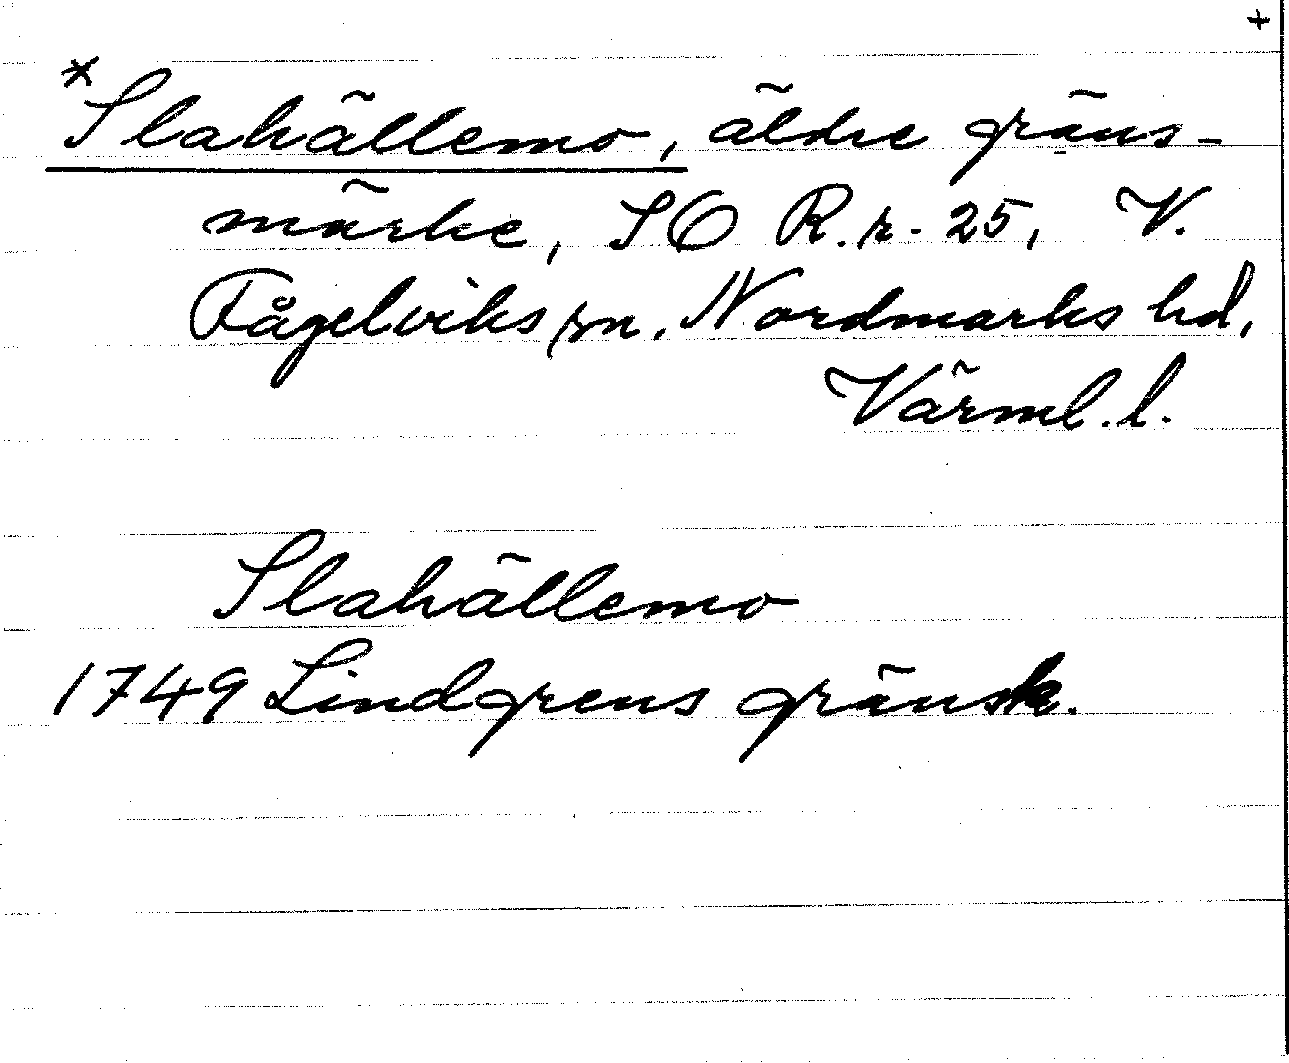 +
*Slahällemo, äldre gräns-
märke, SO R.r. 25, V.
Fågelviks sn, Nordmarks hd,
Värml. l.
Slahällemo
1749 Lindgrens gränsk.